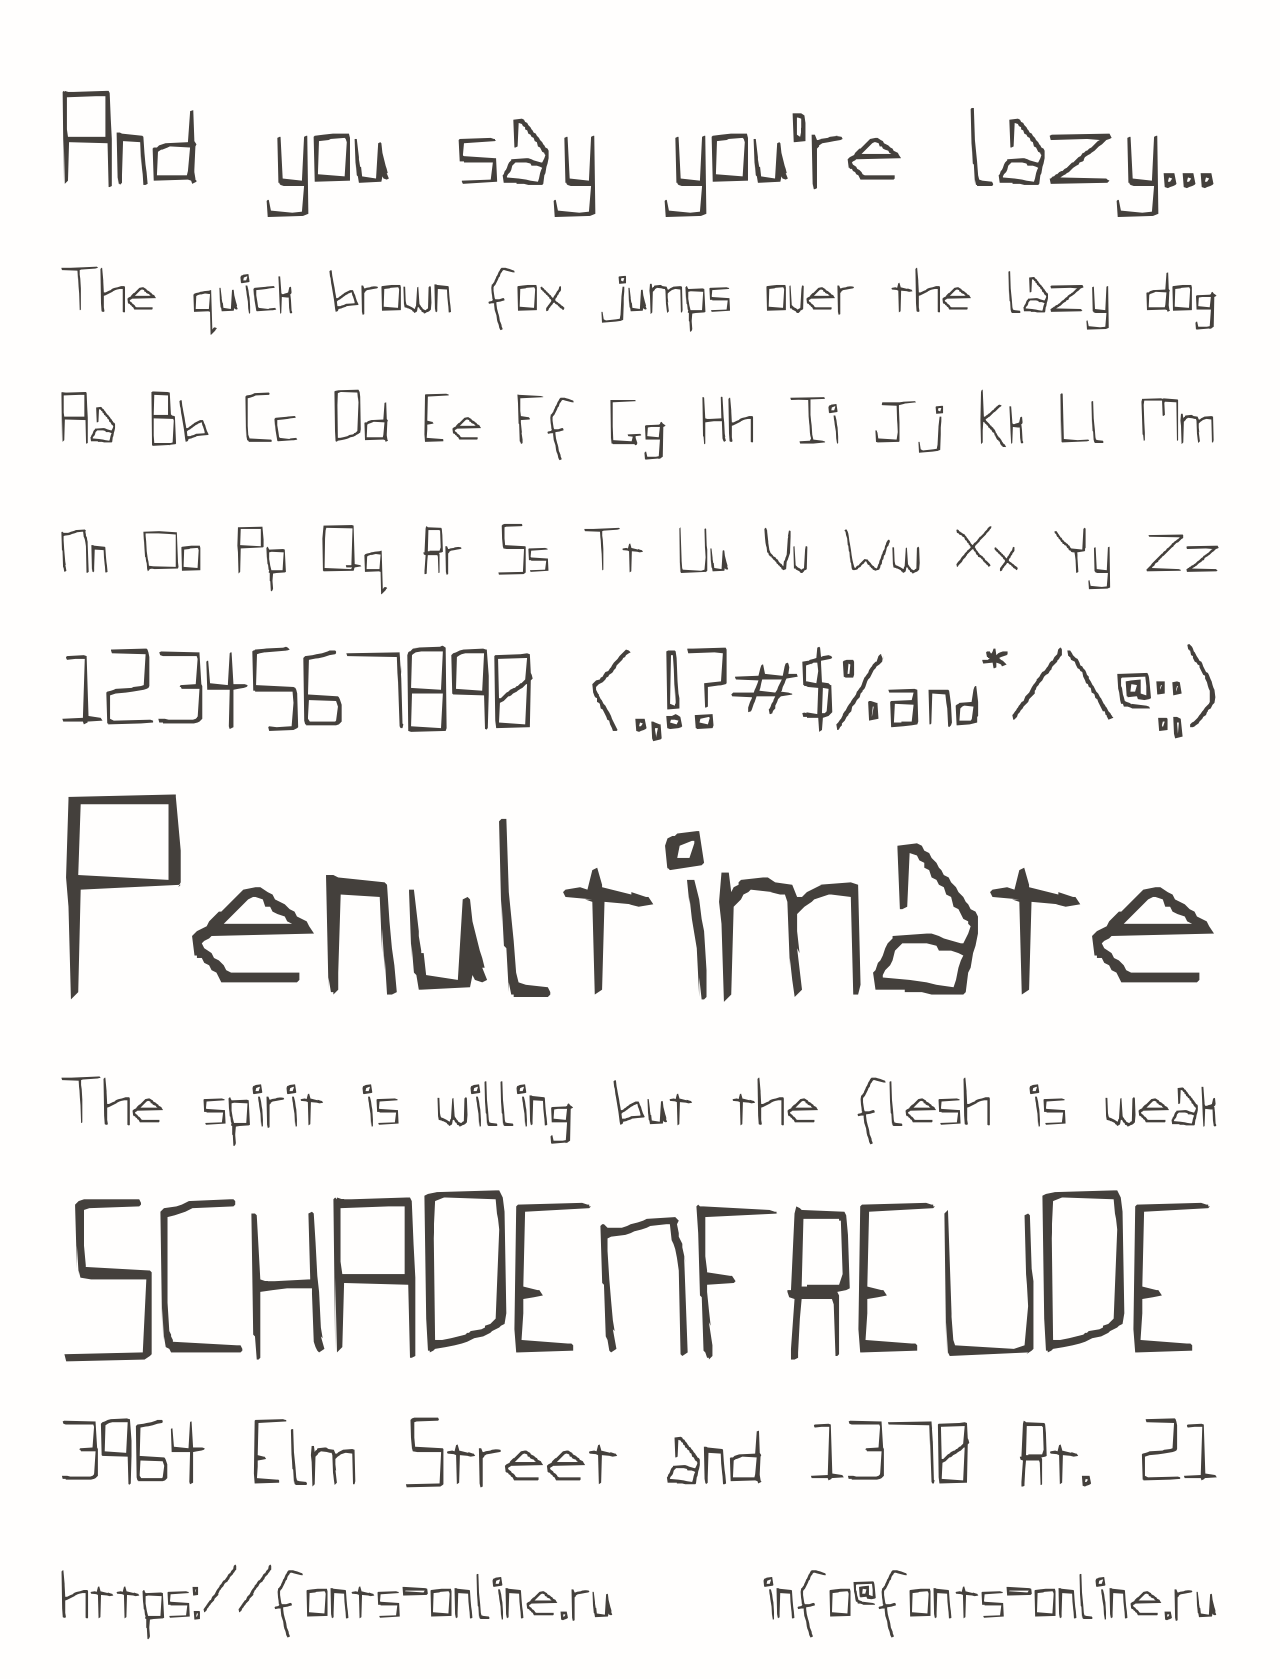 And you say you're lazy...
The quick brown fox jumps over the lazy dog
Aa Bb Cc Dd Ee Ff Gg Hh Ii Jj Kk Ll Mm
Nn Oo Pp Qq Rr Ss Tt Uu Vv Ww Xx Yy Zz
1234567890 (.,!?#$%and*/\@:;)
Penultimate
The spirit is willing but the flesh is weak
SCHADENFREUDE
3964 Elm Street and 1370 Rt. 21
https://fonts-online.ru info@fonts-online.ru